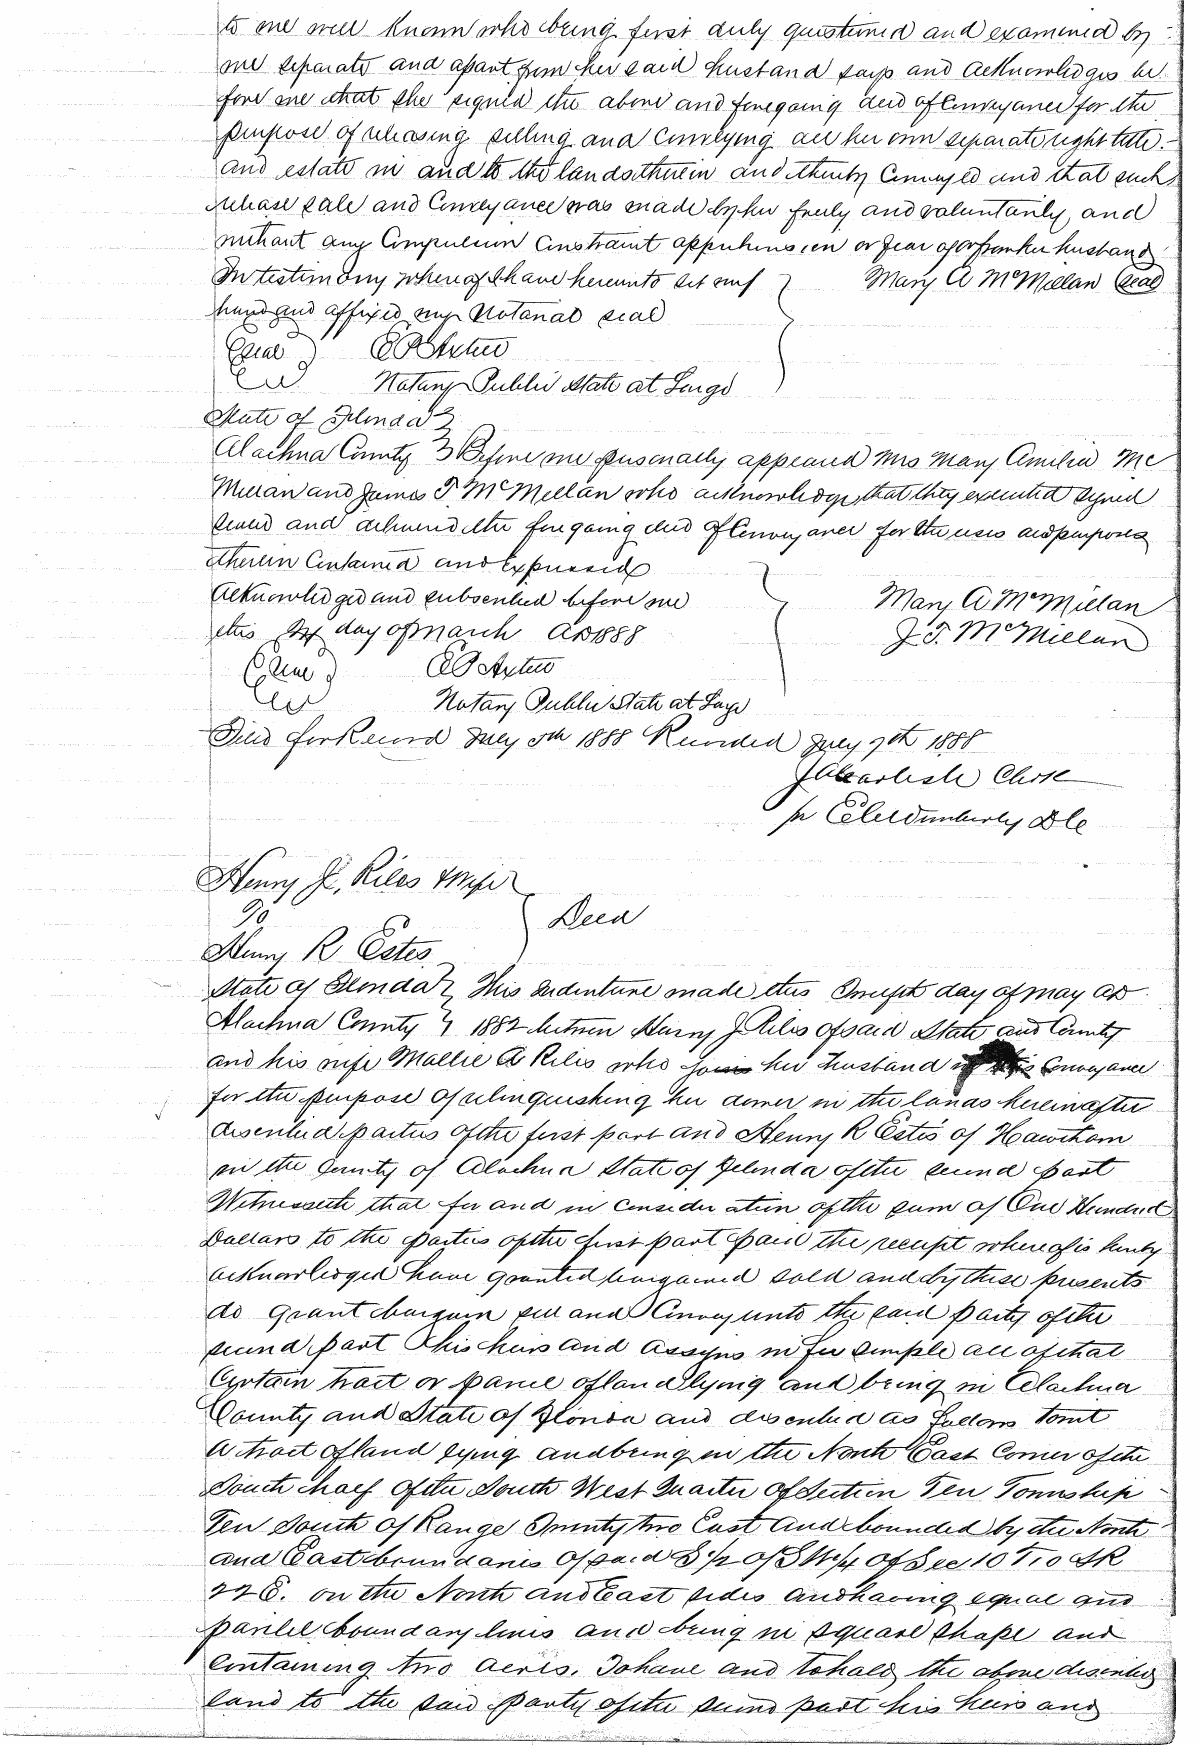 to me well known who being first duly questioned and examined by
me separate and apart from her said husband says and acknowledges be
fore me that she signed the above and foregoing deed of Conveyance for the
purpose of releasing selling and Conveying all her own separate right title
and estate in and to the lands therein and thereby Conveyed and that such
release sale and Conveyance was made by her freely and voluntarily, and
without any Compulsion Constraint apprehension or fear of or from her husband
In testimony whereof I have hereunto set my } Mary A McMillan (seal)
hand and affixed my Notarial seal
(seal) E P Axtell
Notary Public State at Large
State of Florida }
Alachua County } Before me personally appeared Mrs Mary Amelia Mc
Millan and James T. McMillan who acknowledge that they executed signed
sealed and delivered the foregoing deed of Conveyance for the uses and purposes
therein Contained and expressed
Acknowledged and subscribed before me } Mary A McMillan
this day of March AD 1888 J. T. McMillan
(Seal) E P Axtell
Notary Public State at Large
Filed for Record July 5th 1888 Recorded July 7th 1888
J A Carlisle Clerk
pr Wimberly D C
Henry J. Riles & Wife }
To } Deed
Henry R Estes
State of Florida } This Indenture made this Twelfth day of May AD
Alachua County } 1882 between Henry J. Riles of said State and County
and his wife Mallie A Riles who joins her husband in this Conveyance
for the purpose of relinquishing her dower in the lands hereinafter
described parties of the first part and Henry R Estes of Hawthorn
in the County of Alachua State of Florida of the second part
Witnesseth that for and in consideration of the sum of One Hundred
Dollars to the parties of the first part paid the receipt whereof is hereby
acknowledged have granted bargained sold and by these presents
do grant bargain sell and Convey unto the said party of the
second part his heirs and assigns in fee simple all of that
Certain tract or parcel of land lying and being in Alachua
County and State of Florida and described as follows towit
A tract of land lying and being in the North East Corner of the
South half of the South West Quarter of Section Ten Township
Ten South of Range Twenty two East and bounded by the North
and East boundaries of said S 1/2 of SW 1/4 of Sec 10 T 10 S R
22 E. on the North and East sides and having equal and
parilel boundary lines and being in square shape and
Containing two acres. To have and to hold the above described
land to the said party of the second part his heirs and